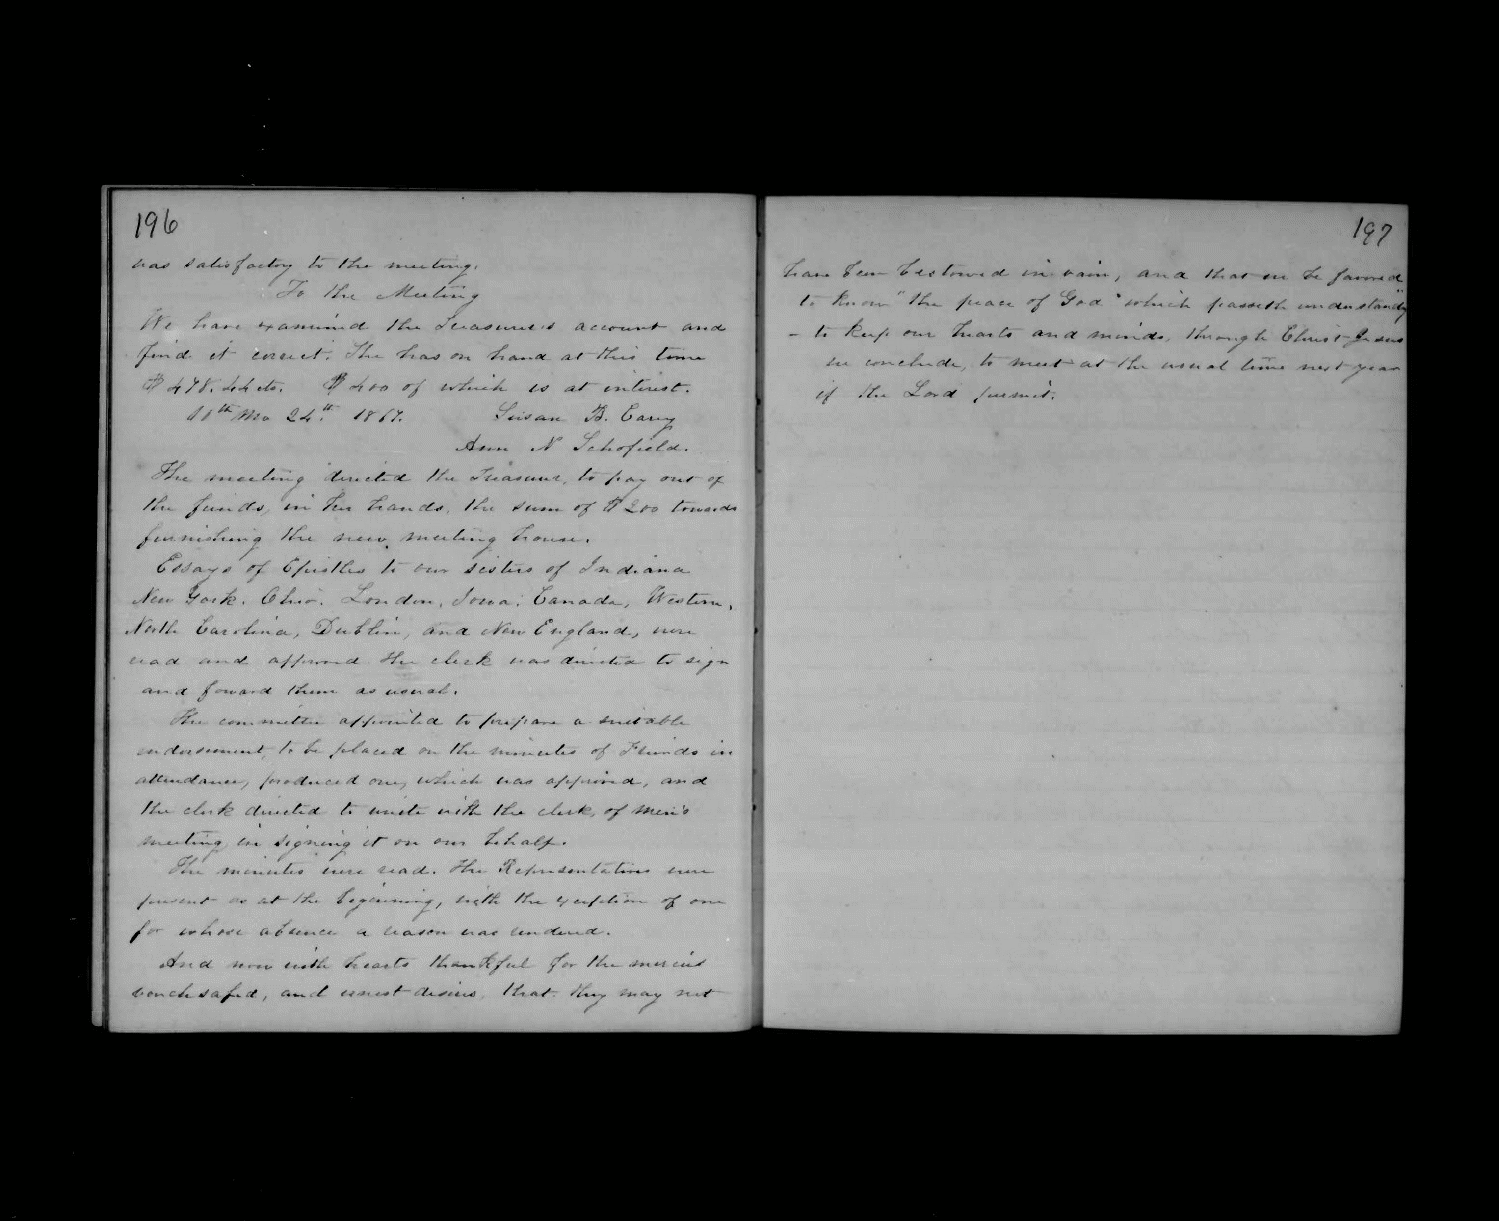 196
was satisfactory to the meeting.
To the Meeting
We have examined the Treasurer's account and
find it correct. She has on hand at this time
$478.44 cts. $400 of which is at interest.
11th Mo 24th 1867. Susan B. Carey
Ann N Schofield.
The meeting directed the Treasurer, to pay out of
the funds, in her hands, the sum of $200 towards
furnishing the new meeting house.
Essays of Epistles to our sisters of Indiana
New York. Ohio. London, Iowa, Canada, Western,
North Carolina, Dublin, and New England, were
read and approved the clerk was directed to sign
and foward them as usual.
The committee appointed to prepare a suitable
endorsement, to be placed on the minutes of Friends in
attendance, produced one, which was approved, and
the clerk directed to unite with the clerk, of men's
meeting in signing it on our behalf.
The minutes were read. The Representatives were
present as at the beginning, with the exception of one
for whose absence a reason was rendered.
And now with hearts thankful for the mercies
vouchsafed, and ernest desires, that they may not
197
have been bestowed in vain, and that we be favored
to know "the peace of God" which passeth understandg"
- to keep our hearts and minds, through Christ Jesus
we conclude, to meet at the usual time next year
if the Lord permit.